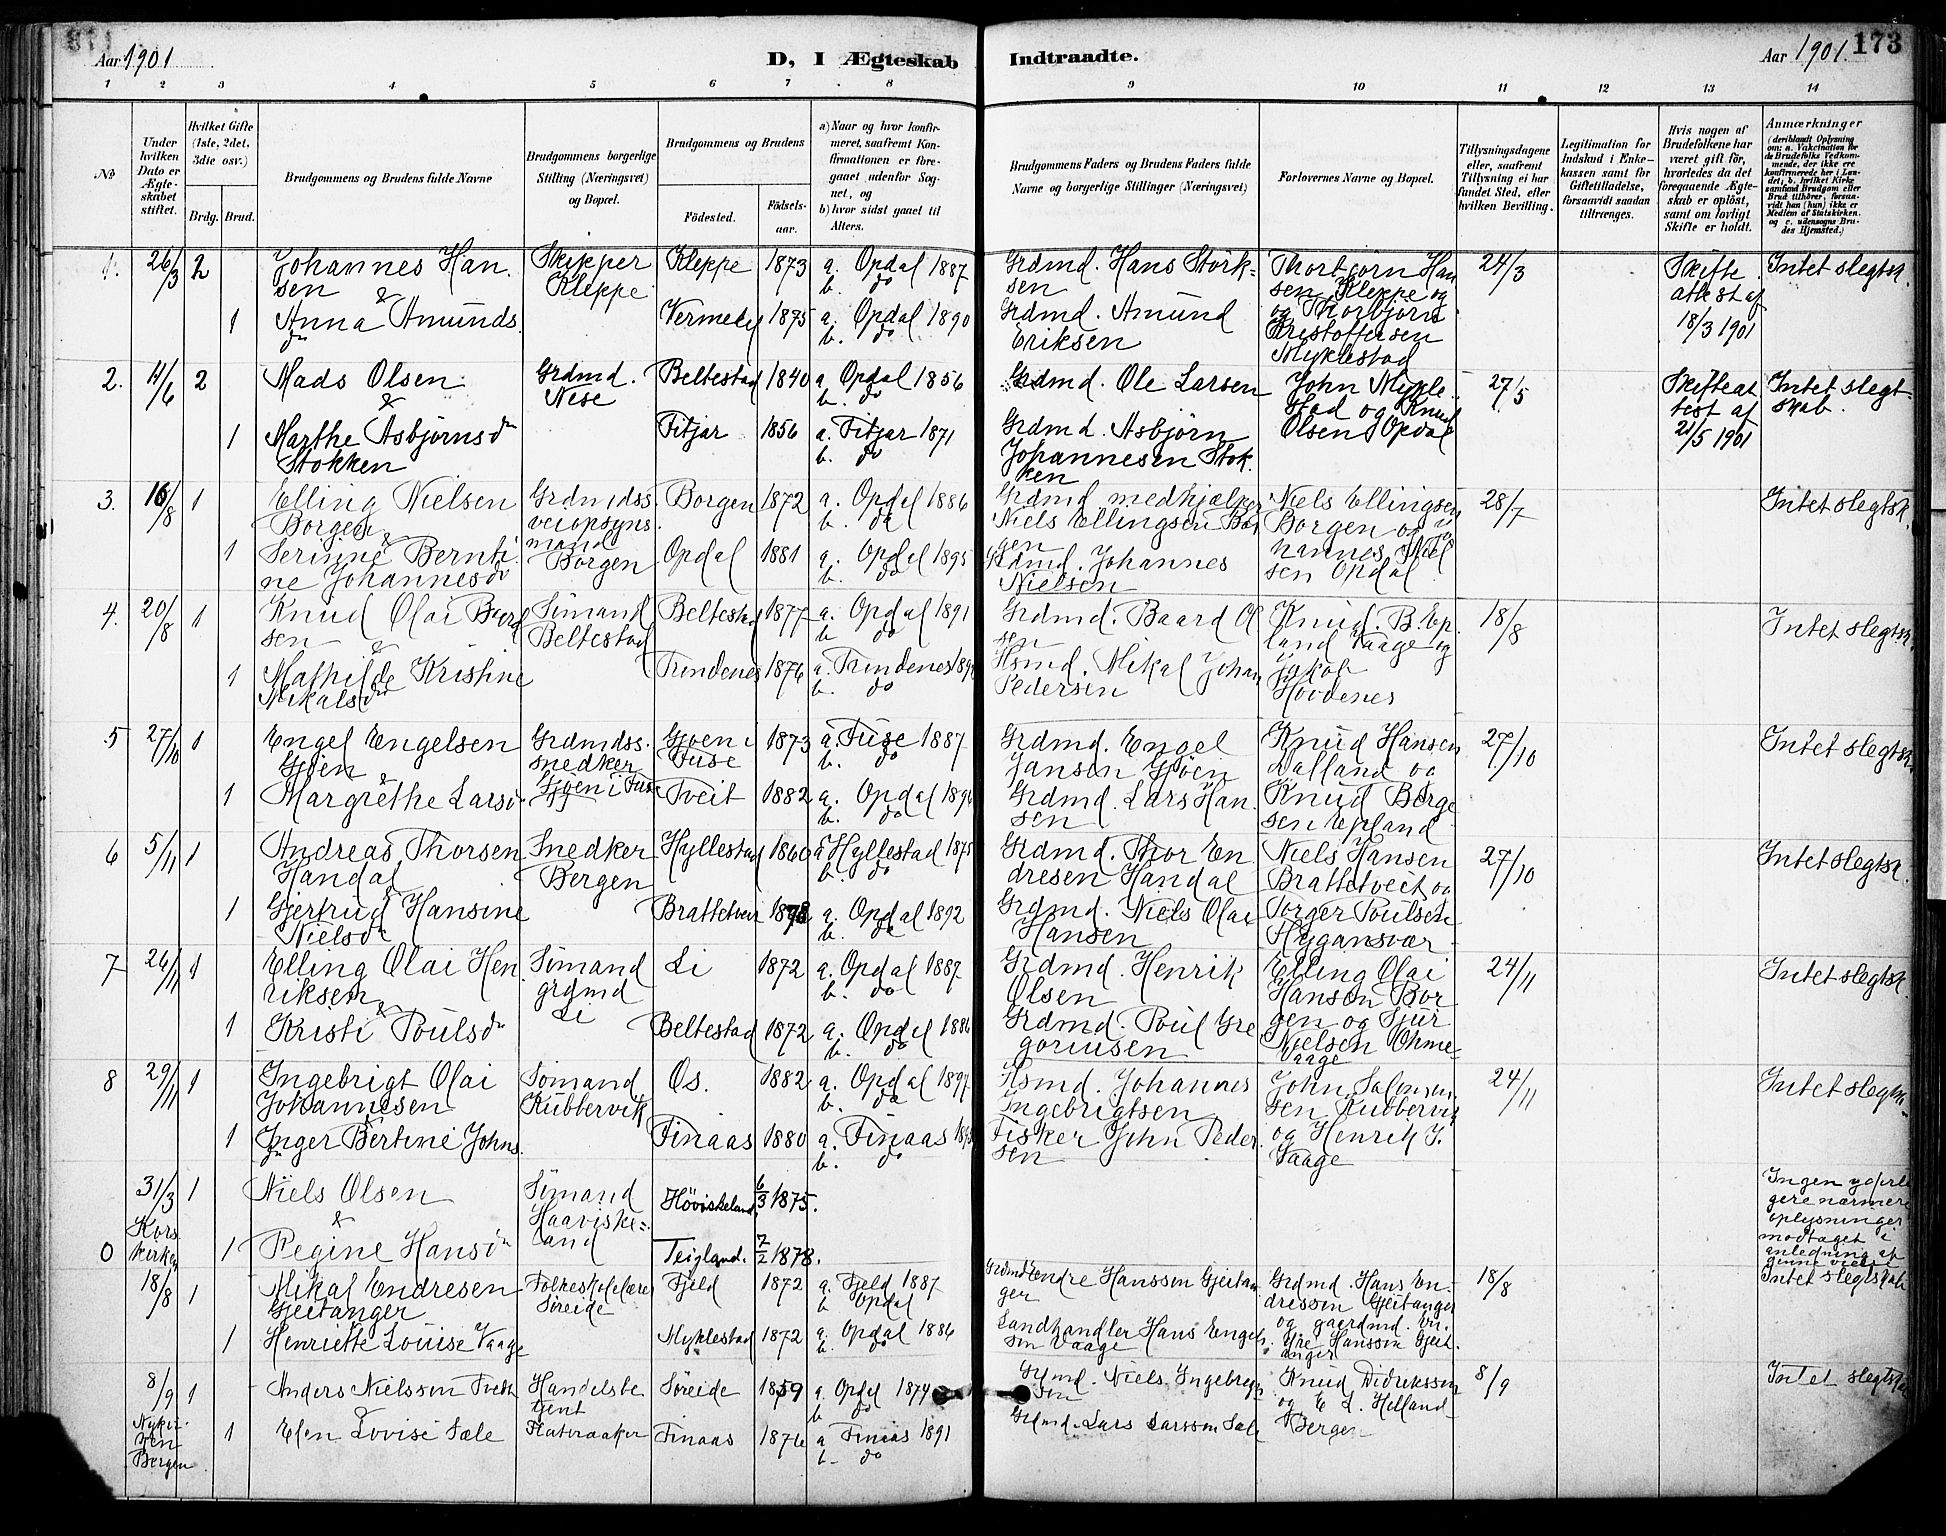 Aar 1901
D, I Ægteskab Indtraadte.
Aar 1901. 173
1 2 3 4 5 6 7 8 9 10 11 12 13 14
No
Under hvilken Dato er Ægteskabet stiftet.
Hvilket Gifte (1ste, 2det, 3die osv.)
Brdg. Brud.
Brudgommens og Brudens fulde Navne
Brudgommens borgerlige Stilling (Næringsvei) og Bopæl.
Brudgommens og Brudens
Födested. Födselsaar.
a) Naar og hvor konfirmeret, saafremt Konfirmationen er foregaaet udenfor Sognet, og
b) hvor sidst gaaet til Alters.
Brudgommens Faders og Brudens Faders fulde Navne og borgerlige Stillinger (Næringsvei)
Forlovernes Navne og Bopæl.
Tillysningsdagene eller, saafremt Tillysning ei har fundet Sted, efter hvilken Bevilling.
Legitimation for Indskud i Enkekassen samt for Giftetilladelse, forsaavidt saadan tiltrænges.
Hvis nogen af Brudefolkene har været gift för, hvorledes da det foregaaende Ægteskab er oplöst, samt om lovligt Skifte er holdt.
Anmærkninger (deriblandt Oplysning om: a. Vakcination for de Brudefolks Vedkommende, der ikke ere konfirmerede her i Landet; b. hvilket Kirkesamfund Brudgom eller Brud tilhörer, forsaavidt han (hun) ikke er Medlem af Statskirken. og c. udensogns Brudes Hjemsted.)
1. 26/3 2 Johannes Hansen & Skipper Kleppe Kleppe 1873 a. Opdal 1887 b. do Grdmd. Hans Störksen Thorbjörn Hansen Kleppe og 24/3 Skifteattest af 18/3 1901 Intet slegtsk.
1 Anna Amundsdr Vermedy 1875 a. Opdal 1890 b. do Grdmd. Amund Eriksen og Thorbjörn Kristoffersen Myklestad
2. 14/6 2 Mads Olsen & Grdmd. Nese Beltestad 1840 a. Opdal 1856 b. do Grdmd. Ole Larsen John Myklestad og Knud Olsen Opdal 27/5 Skifteattest af 21/5 1901 Intet slegtskab.
1 Marthe Asbjørnsdr Stokken Fitjar 1856 a. Fitjar 1871 b. do Grdmd. Asbjørn Johannesen Stokken
3. 16/8 1 Elling Nielsen Borgen & Grdmdss. veiopsynsmand Borgen Borgen 1872 a. Opdal 1886 b. do Grdmd. medhjælper Niels Ellingsen Borgen Niels Ellingsen Borgen og Johannes Nielsen Opdal 28/7 Intet slegtsk.
1 Serinne Berntine Johannesdr Opdal 1881 a. Opdal 1895 b. do Grdmd. Johannes Nielsen
4. 20/8 1 Knud Olai Baardsen & Sömand Beltestad Beltestad 1877 a. Opdal 1891 b. do Grdmd. Baard Olsen Knud. B. Epland Vaage og Jakob Hovdenes 18/8 Intet slegtsk.
1 Mathilde Kristine Mikalsdr Trindenes 1876 a. Trindenes b. do Hsmd. Mikal Johan Pedersen
5 27/10 1 Engel Engelsen Gjöen & Grdmdss. snedker Gjöen i Fuse Gjöen i Fuse 1873 a. Fuse 1887 b. do Grdmd. Engel Jansen Gjöen Knud Hansen Dalland og Knud Børgesen Epland 27/10 Intet slegtsk.
1 Margrethe Larsdr Tveit 1882 a. Opdal b. do Grdmd. Lars Hansen
6 5/11 1 Andreas Thorsen Handal & Snedker Bergen Hyllestad 1860 a. Hyllestad 1875 b. do Grdmd. Thor Endresen Handal Niels Hansen Brattetveit og Torger Poulsen Hygansvær 27/10 Intet slegtsk.
1 Gjertrud Hansine Nielsdr Brattetveit 1878 a. Opdal 1892 b. do Grdmd. Niels Olai Hansen
7 24/11 1 Elling Olai Henriksen & Sömand grdmd Li Li 1872 a. Opdal 1887 b. do Grdmd. Henrik Olsen Elling Olai Hansen Borgen og Sjur Nielsen Ohme-Vaage 24/11 Intet slegtsk.
1 Kristi Poulsdr Beltestad 1872 a. Opdal 1886 b. do Grdmd. Poul Gregoriusen
8 29/11 1 Ingebrigt Olai Johannesen & Sömand Kubbervik Os. 1882 a. Opdal 1897 b. do Hsmd. Johannes Ingebrigtsen John Salomonsen Kubbervik og Henrik J. Vaage 24/11 Intet slegtsk.
1 Inger Bertine Johnsdr Finaas 1880 a. Finaas b. do Fisker John Pedersen
31/3 1 Niels Olsen & Sömand Haaviskeland Höviskeland 6/3 1875. Ingen yderligere nærmere oplysninger modtaget i anledning af denne vielse
0 Korskirken 1 Regine Hansdr Teigland. 7/2 1878.
18/8 1 Mikal Endresen Gjeitanger Folkeskolelærer Søreide Fjeld 1872 a. Fjeld 1887 b. Opdal Grdmd Endre Hanssen Gjeitanger Grdmd. Hans Endressen Gjeitanger og gaardmd. Hanssen Gjeitanger 18/8 Intet slegtskab
1 Henriette Louise Vaage Myklestad 1872 a. Opdal 1886 b. do Landhandler Hans Engelsen Vaage
8/9 1 Anders Nielssen Tveit & Handelsbetjent Flateraaker Søreide 1859 a. Opdal 1874 b. do Grdmd. Niels Ingebrigtsen Knud Didrikssen og E. L. Helland Bergen 8/9 Intet slegtskab
Nykirken Bergen 1 Elen Lovise Sæle Finaas 1876 a. Finaas 1891 b. do Grdmd. Lars Larssen Sæle